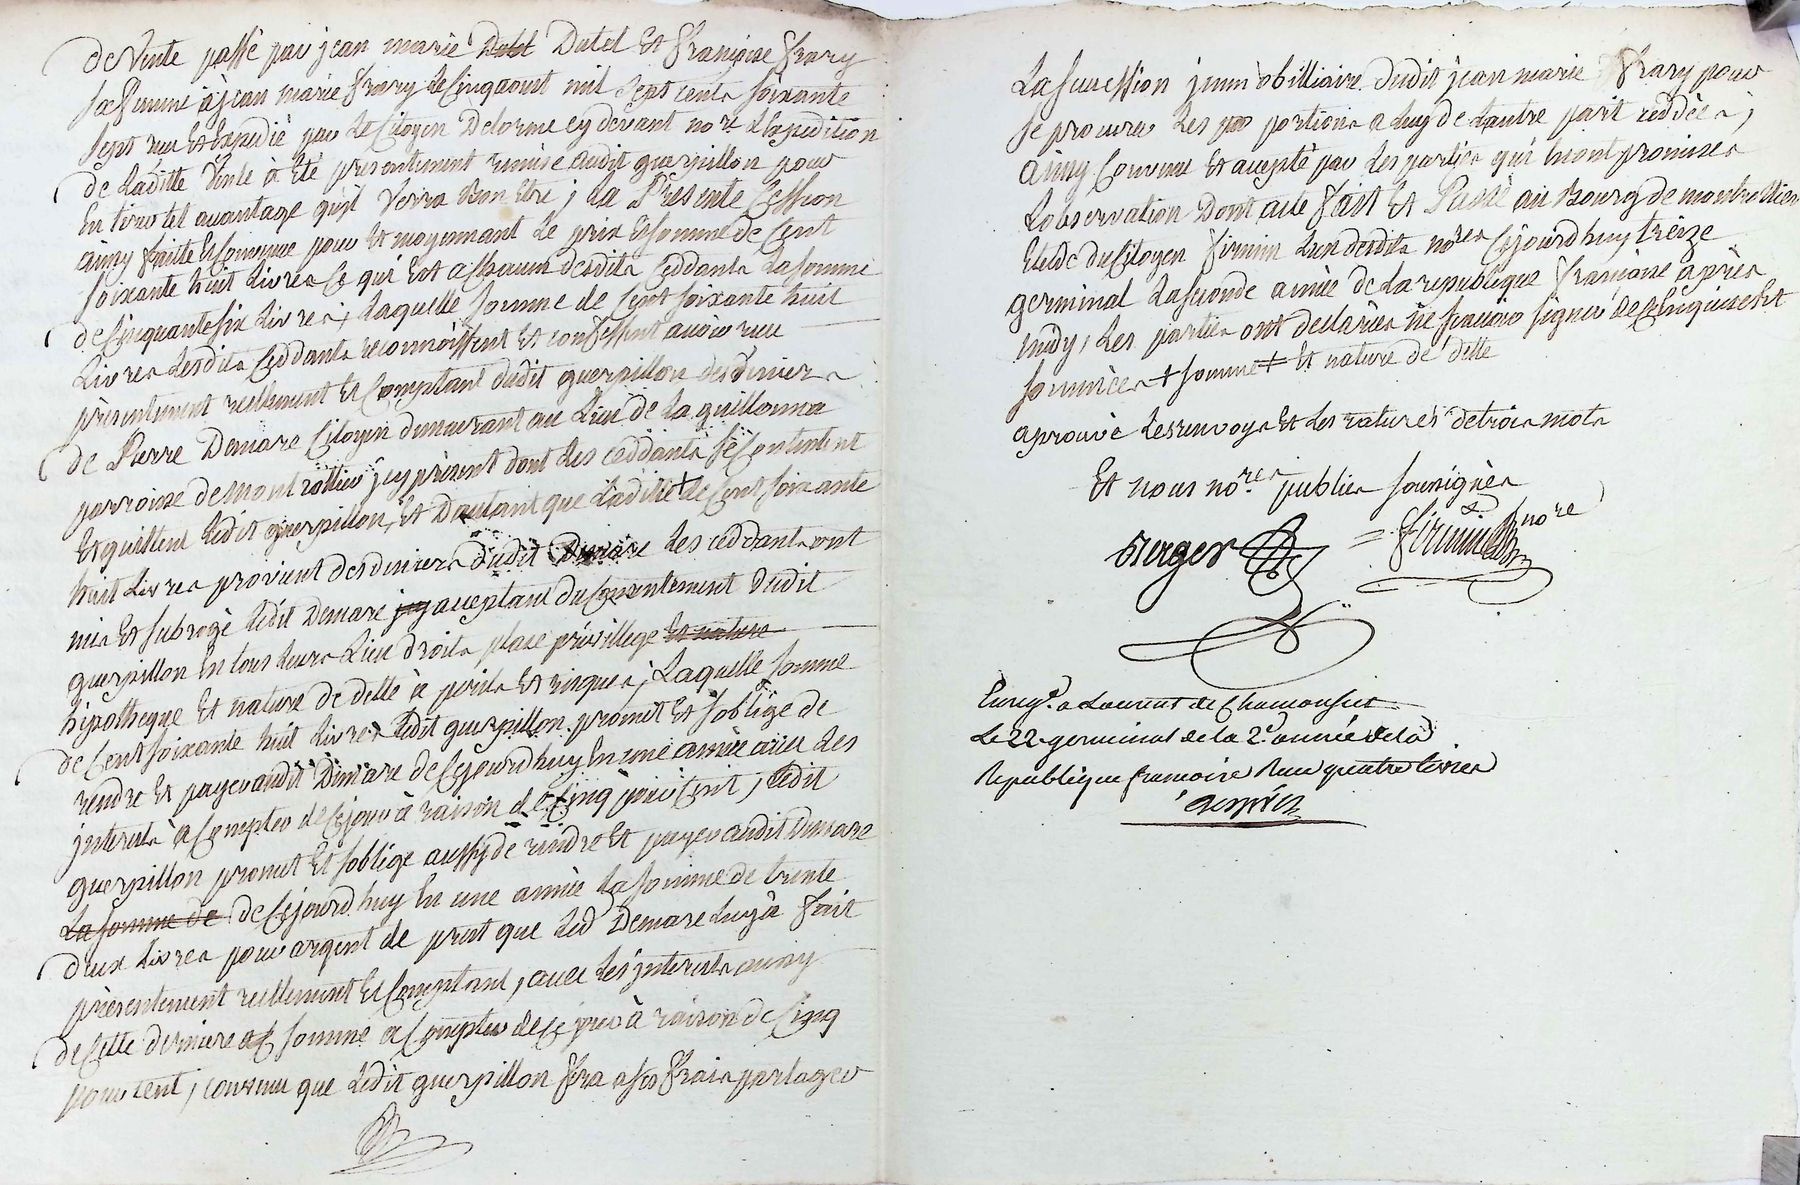 de Vente passé par jean marie Dutel Et françoise frary
sa femme à jean marie frary le Cinq aoust mil sept cents soixante
sept reçu Et Expedié par le Citoyen Delorme cy devant nore lExpedition
de laditte Vente à Eté presentement remise audit guerpillon pour
En tirer tel avantage qu'il Verra Bon Etre ; la Présente Cession
ainsy faitte Et Convenue pour Et moyennant le prix Et somme de Cent
soixante huit livres Ce qui Est a chacun desdits Ceddants la somme
de Cinquante six livres, laquelle somme de Cent soixante huit
livres lesdits Ceddants reconnoissent Et confessent avoir reçu
présentement reellement Et Comptant dudit guerpillon des deniers
de Pierre Demare Citoyen demeurant au lieu de la guillonna
parroisse de montrottier jcy présent dont les ceddants se Contentent
Et quittent ledit guerpillon, Et Dautant que laditte + de Cent soixante
huit livres provient des deniers dudit Demare les ceddants ont
mis Et subrogé ledit Demare jcy acceptant du Consentement dudit
guerpillon En tous leurs lieu droits place privillege Et nature
hipotheque Et nature de dette à perils Et risques, laquelle somme
de Cent soixante huit livres ledit guerpillon promet Et s'oblige de
rendre Et payer audit Demare de Cejourd'huy En une année avec les
jnterets à Compter de Cejour à raison de Cinq pour Cent, ledit
guerpillon promet Et soblige aussy de rendre Et payer audit Demare
la somme de de Cejourd'huy En une année la somme de trente
deux livres pour argent de prest que led Demare luy à fait
présentement reellement Et Comptant, avec les jnterets ainsy
de Cette derniere somme a Compter de Ce jour à raison de Cinq
pour cent, convenu que ledit guerpillon fera a ses frais partager
la sucession jmmobilliaire dudit jean marie frary pour
se procurer les portions a luy de lautre part ceddées,
ainsy Convenu Et accepté par les parties qui lont promises
lobservation Dont acte fait Et Passé au Bourg de montrottier
Etude du Citoyen firmin lun desdits nores Cejourdhuy treize
germinal la seconde année de la republique francaise après
midy, les parties ont declarées ne scavoir signer de Cenquises Et
sommées + somme + Et nature de dette
aprouvé les renvoys Et les ratures de trois mots
Et nous nores publics sousignés
Berger = firmin nore
Enregé. a Laurent de Chamousset
Le 22 germinal de la 2e. année de la
Republique francoise Recu quatre livres